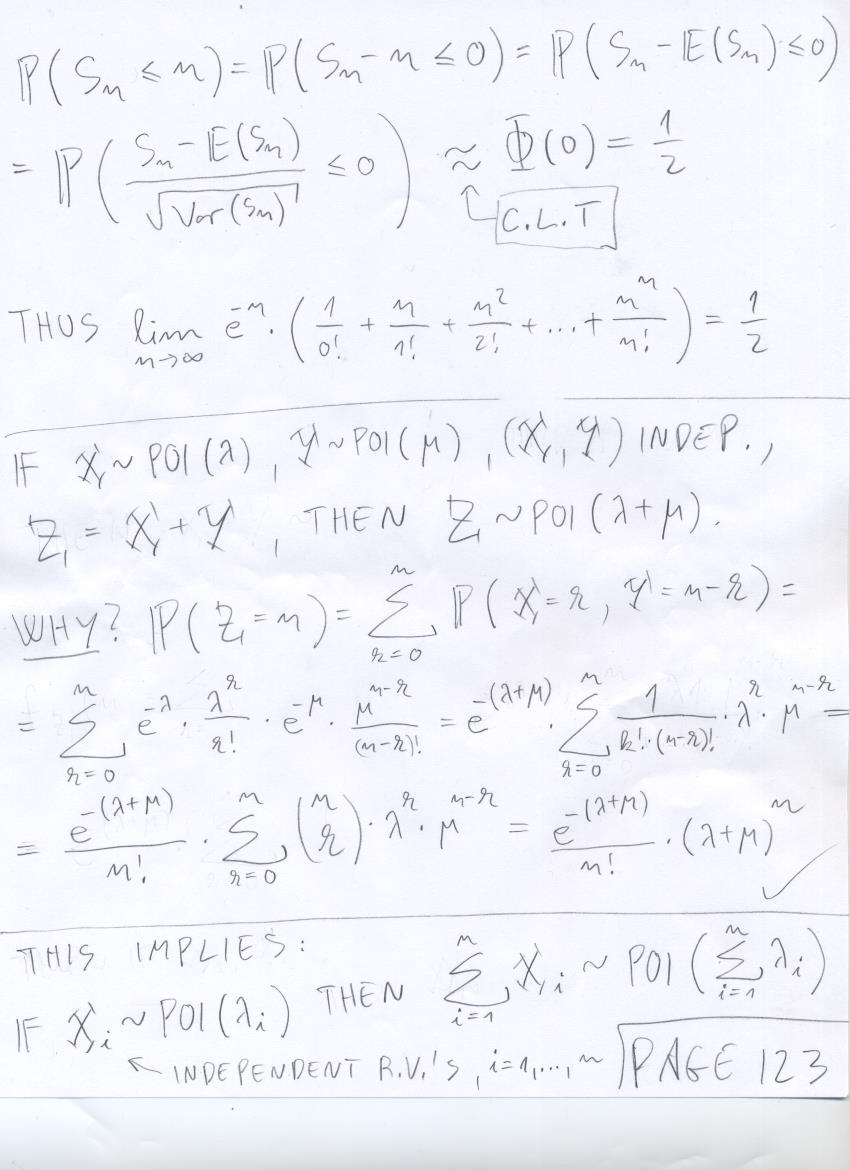 ℙ(Sₙ ≤ n) = ℙ(Sₙ - n ≤ 0) = ℙ(Sₙ - 𝔼(Sₙ) ≤ 0)
= ℙ( (Sₙ - 𝔼(Sₙ)) / √Var(Sₙ) ≤ 0 ) ≈ Φ(0) = 1/2
C.L.T
THUS lim_{n→∞} e^{-n} · ( 1/0! + n/1! + n²/2! + ... + nⁿ/n! ) = 1/2
IF X ~ POI(λ), Y ~ POI(μ), (X, Y) INDEP.,
Z = X + Y, THEN Z ~ POI(λ+μ).
WHY? ℙ(Z = n) = ∑_{k=0}^{n} ℙ(X = k, Y = n-k) =
= ∑_{k=0}^{n} e^{-λ} · λ^k/k! · e^{-μ} · μ^{n-k}/(n-k)! = e^{-(λ+μ)} · ∑_{k=0}^{n} 1/(k!·(n-k)!) · λ^k · μ^{n-k} =
= e^{-(λ+μ)}/n! · ∑_{k=0}^{n} (n k) · λ^k · μ^{n-k} = e^{-(λ+μ)}/n! · (λ+μ)^n ✓
THIS IMPLIES:
IF X_i ~ POI(λ_i) THEN ∑_{i=1}^{n} X_i ~ POI(∑_{i=1}^{n} λ_i)
INDEPENDENT R.V.'S, i=1,...,n
PAGE 123